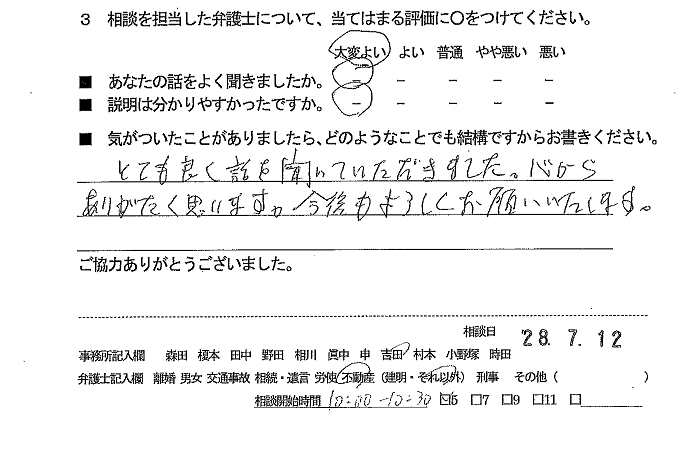 3 相談を担当した弁護士について、当てはまる評価に○をつけてください。
大変よい よい 普通 やや悪い 悪い
■ あなたの話をよく聞きましたか。 － － － － －
■ 説明は分かりやすかったですか。 － － － － －
■ 気がついたことがありましたら、どのようなことでも結構ですからお書きください。
とても良く話を聞いていただきました。心から
ありがたく思います。今後もよろしくお願いいたします。
ご協力ありがとうございました。
相談日 '28.7.12
事務所記入欄 森田 榎本 田中 野田 相川 眞中 申 吉田 村本 小野塚 時田
弁護士記入欄 離婚 男女 交通事故 相続・遺言 労使 不動産（建明・それ以外） 刑事 その他（ ）
相談開始時間 10:00-10:30 ☑5 □7 □9 □11 □